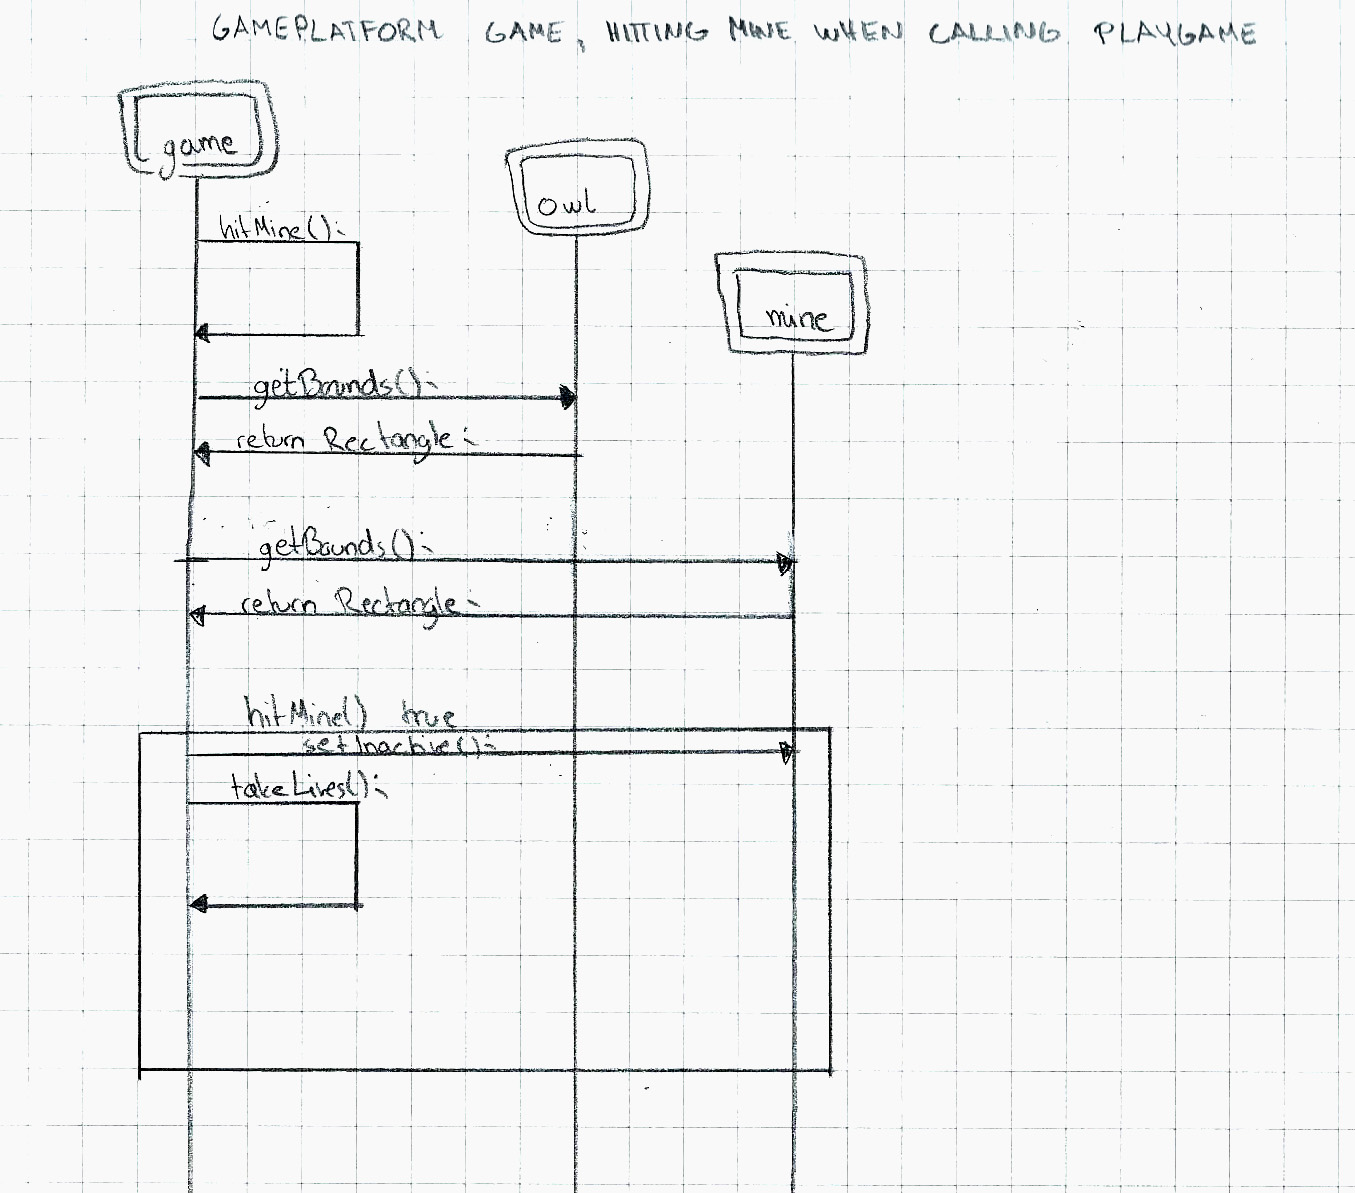 GAMEPLATFORM GAME, HITTING MINE WHEN CALLING PLAYGAME
game
owl
hitMine():
mine
getBounds():
return Rectangle:
getBounds():
return Rectangle:
hitMine() true
setInactive():
takeLives():